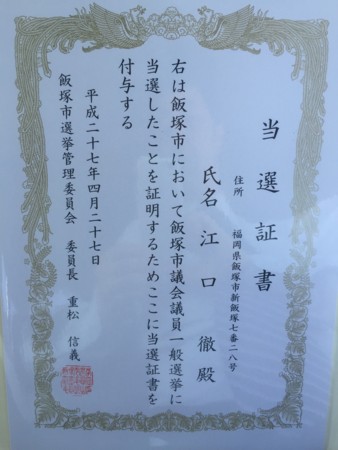 当選証書
住所 福岡県飯塚市新飯塚七番二八号
氏名 江口 徹 殿
右は飯塚市において飯塚市議会議員一般選挙に
当選したことを証明するためここに当選証書を
付与する
平成二十七年四月二十七日
飯塚市選挙管理委員会 委員長 重松 信義